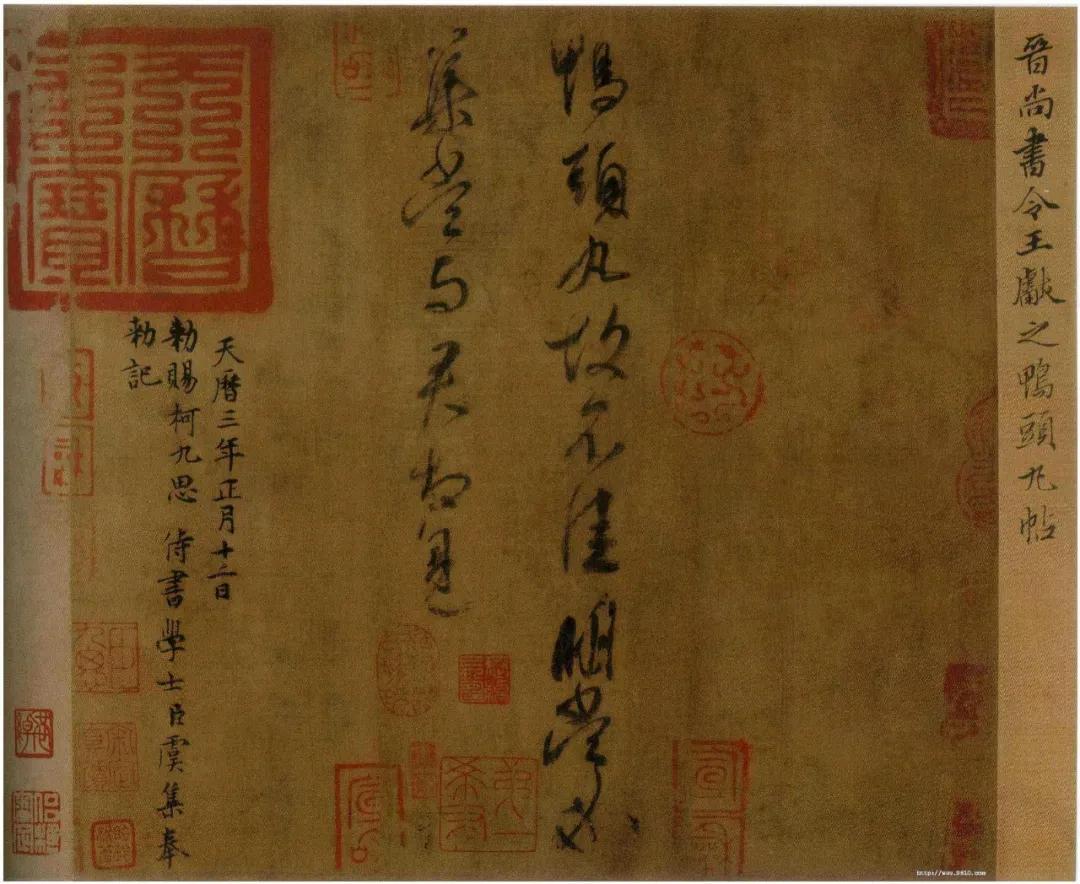 晋尚書令王獻之鴨頭丸帖
鴨頭丸故不佳明當必
集當与君相見
天曆三年正月十二日
勑賜柯九思侍書學士臣虞集奉
勑記
天曆之寶
http://www.9610.com